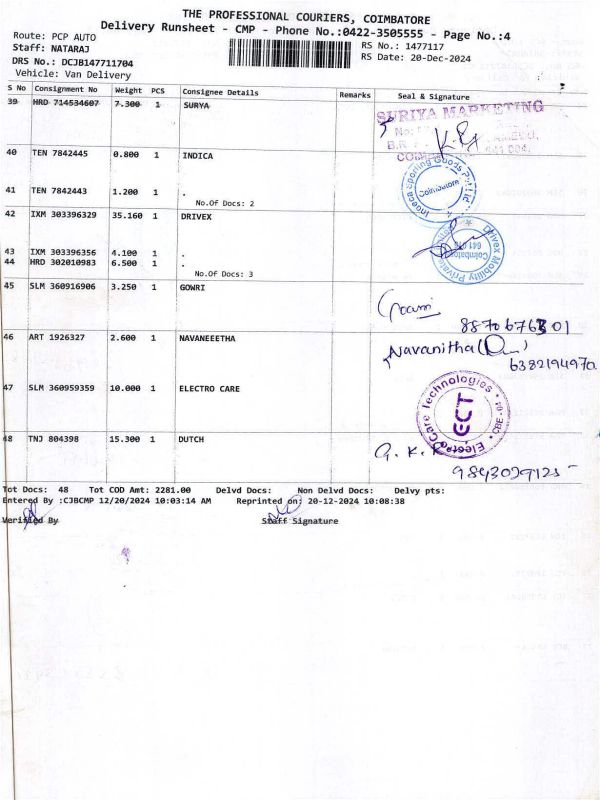 THE PROFESSIONAL COURIERS, COIMBATORE
Delivery Runsheet - CMP - Phone No.:0422-3505555 - Page No.:4
Route: PCP AUTO
RS No.: 1477117
Staff: NATARAJ
RS Date: 20-Dec-2024
DRS No.: DCJB147711704
Vehicle: Van Delivery
S No Consignment No Weight PCS Consignee Details Remarks Seal & Signature
39 HRD 714534607 7.300 1 SURYA
SURIYA MARKETING
40 TEN 7842445 0.800 1 INDICA
Coimbatore
41 TEN 7842443 1.200 1 .
No.Of Docs: 2
42 IXM 303396329 35.160 1 DRIVEX
Drivex Mobility Private
Coimbatore
43 IXM 303396356 4.100 1 .
44 HRD 302010983 6.500 1 .
No.Of Docs: 3
45 SLM 360916906 3.250 1 GOWRI
Gowri
46 ART 1926327 2.600 1 NAVANEEETHA
Navanitha
47 SLM 360959359 10.000 1 ELECTRO CARE
ElectroCare Technologies
ECT
CBE
48 TNJ 804398 15.300 1 DUTCH
G. K. R
9843029125
Tot Docs: 48 Tot COD Amt: 2281.00 Delvd Docs: Non Delvd Docs: Delvy pts:
Entered By :CJBCMP 12/20/2024 10:03:14 AM Reprinted on: 20-12-2024 10:08:38
Verified By Staff Signature